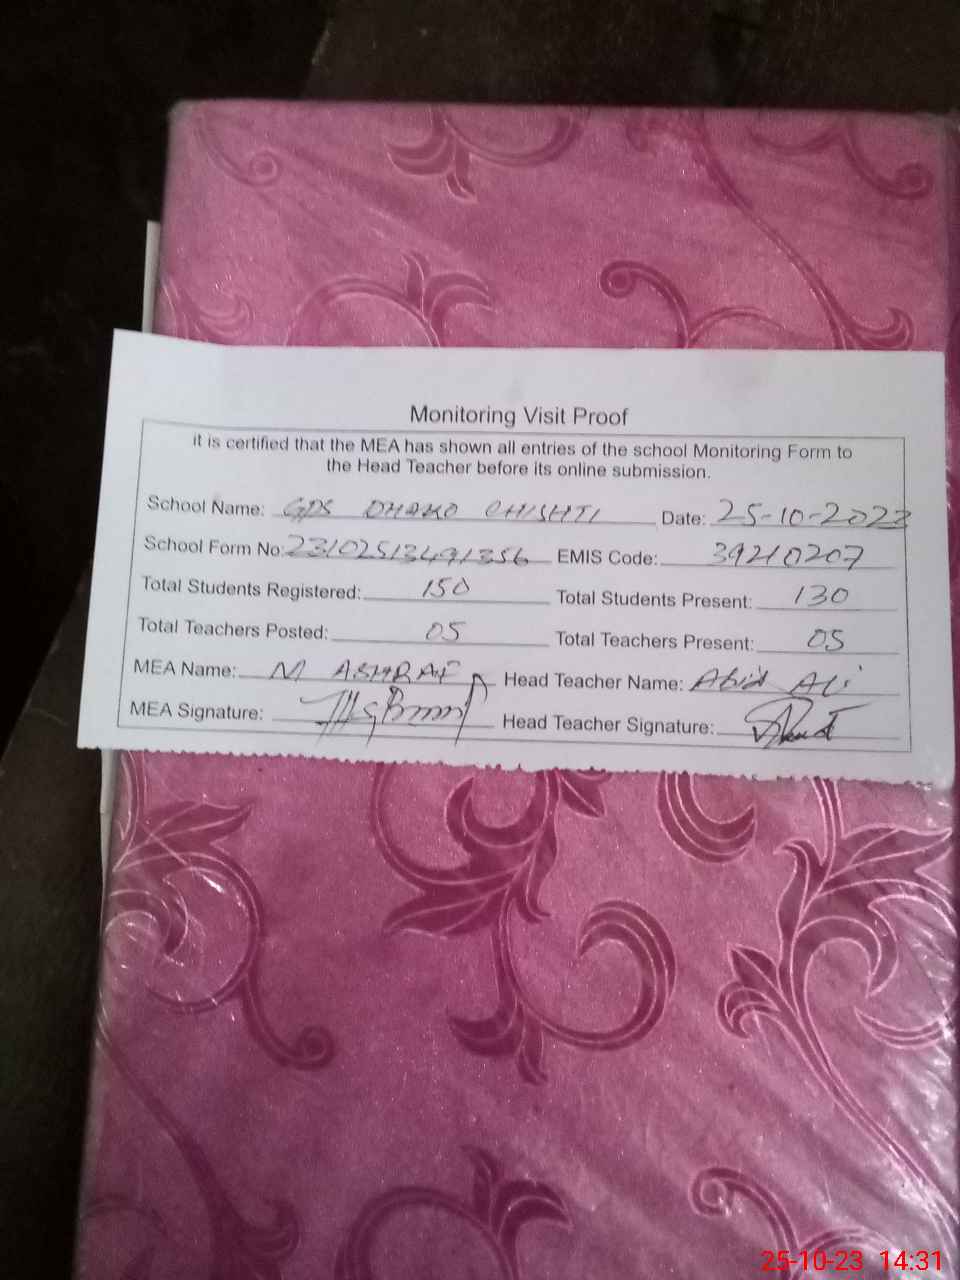 Monitoring Visit Proof
it is certified that the MEA has shown all entries of the school Monitoring Form to
the Head Teacher before its online submission.
School Name: GPS DHAKO CHISHTI Date: 25-10-2023
School Form No: 23102513491356 EMIS Code: 39210207
Total Students Registered: 150 Total Students Present: 130
Total Teachers Posted: 05 Total Teachers Present: 05
MEA Name: M ASHRAF Head Teacher Name: Abid Ali
MEA Signature: Head Teacher Signature:
25-10-23 14:31